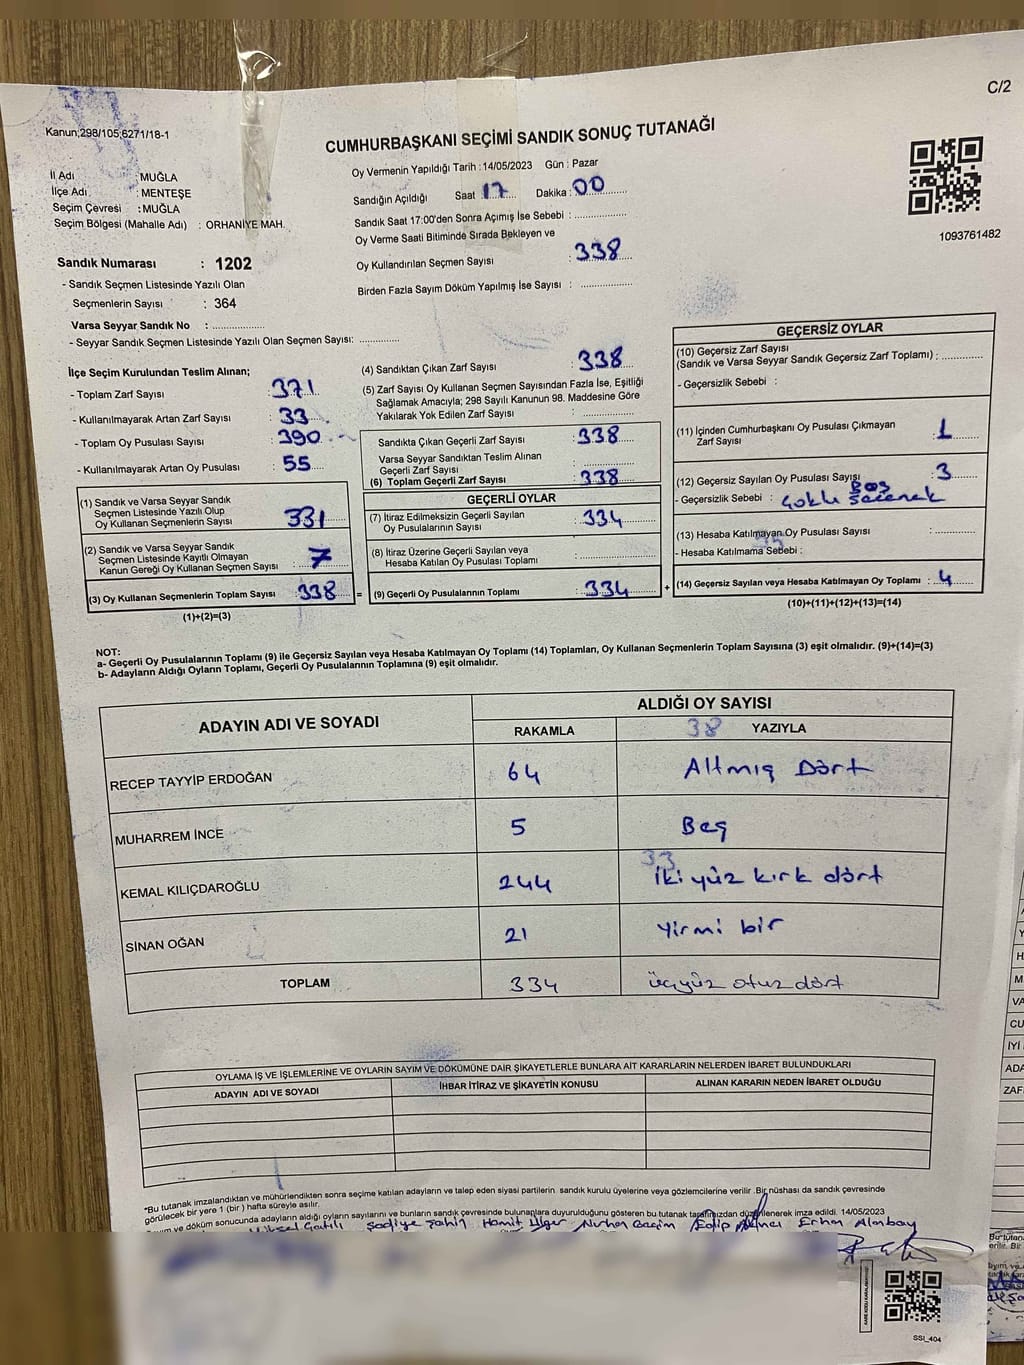 C/2
Kanun;298/105;6271/18-1
CUMHURBAŞKANI SEÇİMİ SANDIK SONUÇ TUTANAĞI
İl Adı : MUĞLA
İlçe Adı : MENTEŞE
Seçim Çevresi : MUĞLA
Seçim Bölgesi (Mahalle Adı) : ORHANİYE MAH.
Oy Vermenin Yapıldığı Tarih : 14/05/2023 Gün : Pazar
Sandığın Açıldığı Saat 17 Dakika : 00
Sandık Saat 17:00'den Sonra Açımış İse Sebebi : ................
Oy Verme Saati Bitiminde Sırada Bekleyen ve
Oy Kullandırılan Seçmen Sayısı : 338
Birden Fazla Sayım Döküm Yapılmış İse Sayısı : ................
1093761482
Sandık Numarası : 1202
- Sandık Seçmen Listesinde Yazılı Olan
Seçmenlerin Sayısı : 364
Varsa Seyyar Sandık No : ................
- Seyyar Sandık Seçmen Listesinde Yazılı Olan Seçmen Sayısı: ............
İlçe Seçim Kurulundan Teslim Alınan;
- Toplam Zarf Sayısı : 371
- Kullanılmayarak Artan Zarf Sayısı : 33
- Toplam Oy Pusulası Sayısı : 390
- Kullanılmayarak Artan Oy Pusulası : 55
(1) Sandık ve Varsa Seyyar Sandık
Seçmen Listesinde Yazılı Olup
Oy Kullanan Seçmenlerin Sayısı : 331
(2) Sandık ve Varsa Seyyar Sandık
Seçmen Listesinde Kayıtlı Olmayan
Kanun Gereği Oy Kullanan Seçmen Sayısı : 7
(3) Oy Kullanan Seçmenlerin Toplam Sayısı : 338
(1)+(2)=(3)
(4) Sandıktan Çıkan Zarf Sayısı : 338
(5) Zarf Sayısı Oy Kullanan Seçmen Sayısından Fazla İse, Eşitliği
Sağlamak Amacıyla; 298 Sayılı Kanunun 98. Maddesine Göre
Yakılarak Yok Edilen Zarf Sayısı : ................
Sandıkta Çıkan Geçerli Zarf Sayısı : 338
Varsa Seyyar Sandıktan Teslim Alınan
Geçerli Zarf Sayısı : ................
(6) Toplam Geçerli Zarf Sayısı : 338
=
GEÇERLİ OYLAR
(7) İtiraz Edilmeksizin Geçerli Sayılan
Oy Pusulalarının Sayısı : 334
(8) İtiraz Üzerine Geçerli Sayılan veya
Hesaba Katılan Oy Pusulası Toplamı : ................
(9) Geçerli Oy Pusulalarının Toplamı : 334
+
GEÇERSİZ OYLAR
(10) Geçersiz Zarf Sayısı
(Sandık ve Varsa Seyyar Sandık Geçersiz Zarf Toplamı) : ............
- Geçersizlik Sebebi :
(11) İçinden Cumhurbaşkanı Oy Pusulası Çıkmayan
Zarf Sayısı : 1
(12) Geçersiz Sayılan Oy Pusulası Sayısı : 3
Boş
- Geçersizlik Sebebi : çoklu seçenek
(13) Hesaba Katılmayan Oy Pusulası Sayısı : ............
- Hesaba Katılmama Sebebi :
(14) Geçersiz Sayılan veya Hesaba Katılmayan Oy Toplamı : 4
(10)+(11)+(12)+(13)=(14)
NOT:
a- Geçerli Oy Pusulalarının Toplamı (9) ile Geçersiz Sayılan veya Hesaba Katılmayan Oy Toplamı (14) Toplamları, Oy Kullanan Seçmenlerin Toplam Sayısına (3) eşit olmalıdır. (9)+(14)=(3)
b- Adayların Aldığı Oyların Toplamı, Geçerli Oy Pusulalarının Toplamına (9) eşit olmalıdır.
ADAYIN ADI VE SOYADI
ALDIĞI OY SAYISI
RAKAMLA 38 YAZIYLA
RECEP TAYYİP ERDOĞAN 64 Altmış Dört
MUHARREM İNCE 5 Beş
33
KEMAL KILIÇDAROĞLU 244 İki yüz kırk dört
SİNAN OĞAN 21 Yirmi bir
TOPLAM 334 üçyüz otuz dört
OYLAMA İŞ VE İŞLEMLERİNE VE OYLARIN SAYIM VE DÖKÜMÜNE DAİR ŞİKAYETLERLE BUNLARA AİT KARARLARIN NELERDEN İBARET BULUNDUKLARI
ADAYIN ADI VE SOYADI İHBAR İTİRAZ VE ŞİKAYETİN KONUSU ALINAN KARARIN NEDEN İBARET OLDUĞU
*Bu tutanak imzalandıktan ve mühürlendikten sonra seçime katılan adayların ve talep eden siyasi partilerin sandık kurulu üyelerine veya gözlemcilerine verilir .Bir nüshası da sandık çevresinde
görülecek bir yere 1 (bir ) hafta süreyle asılır.
ve döküm sonucunda adayların aldığı oyların sayılarını ve bunların sandık çevresinde bulunanlara duyurulduğunu gösteren bu tutanak tarafımızdan düzenlenerek imza edildi. 14/05/2023
Şadiye Şahin Hamit Ülger Nurhan Geçim Erhan Alanbay
SSI_404